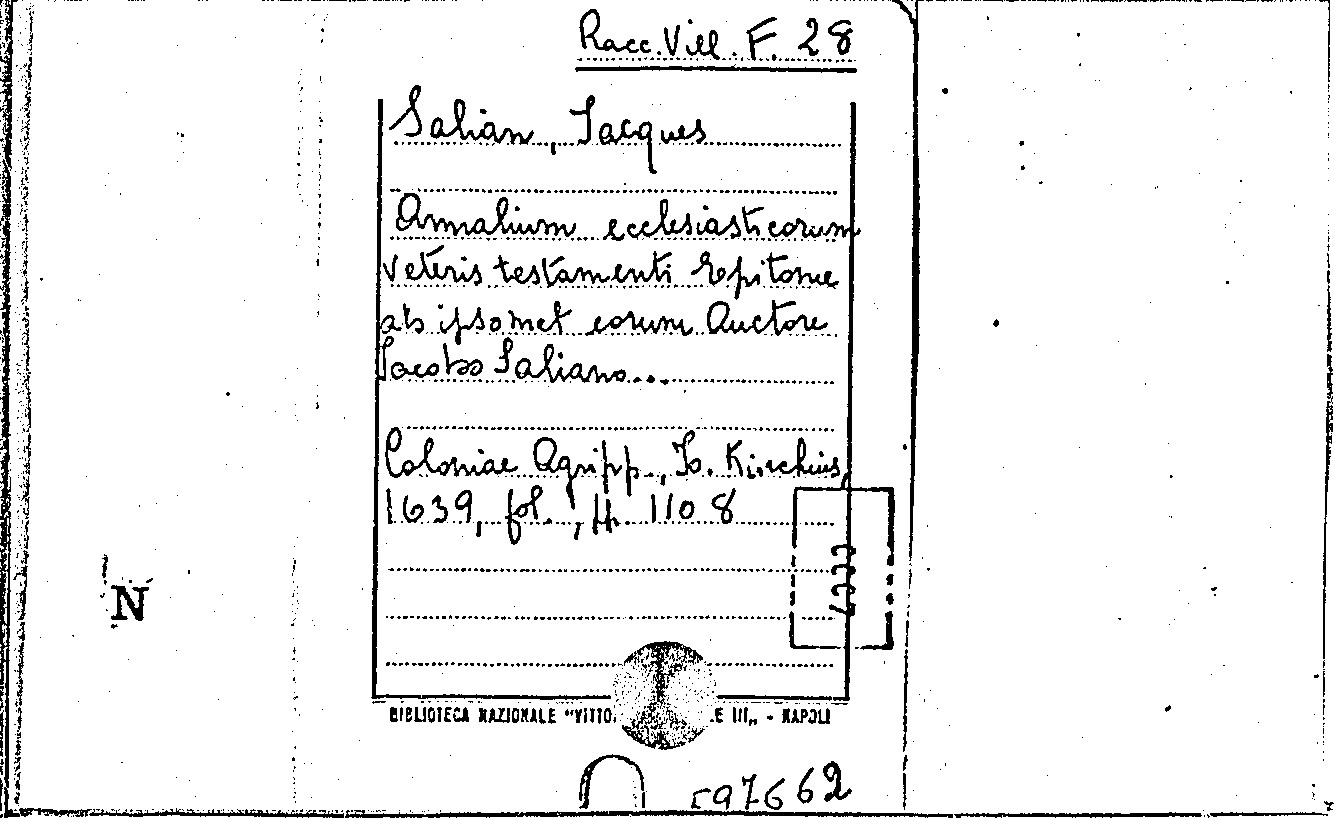 Racc. Vill. F. 28
Salian, Jacques
Annalium ecclesiasticorum
veteris testamenti Epitome
ab ipsomet eorum Auctore
Jacobo Saliano...
Coloniae Agripp., Io. Kinchius,
1639, fol., pp. 1108
N
BIBLIOTECA NAZIONALE "VITTO E III„ - NAPOLI
597662